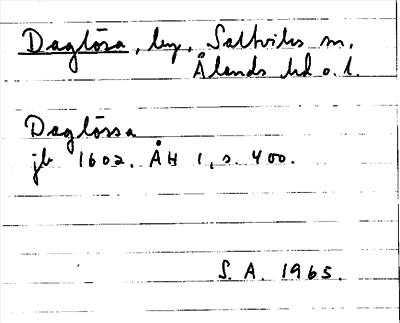 Daglösa, by, Saltviks sn,
Ålands hd o. l.
Daglössa
jb 1602. ÅH 1, s. 400.
S. A. 1965.